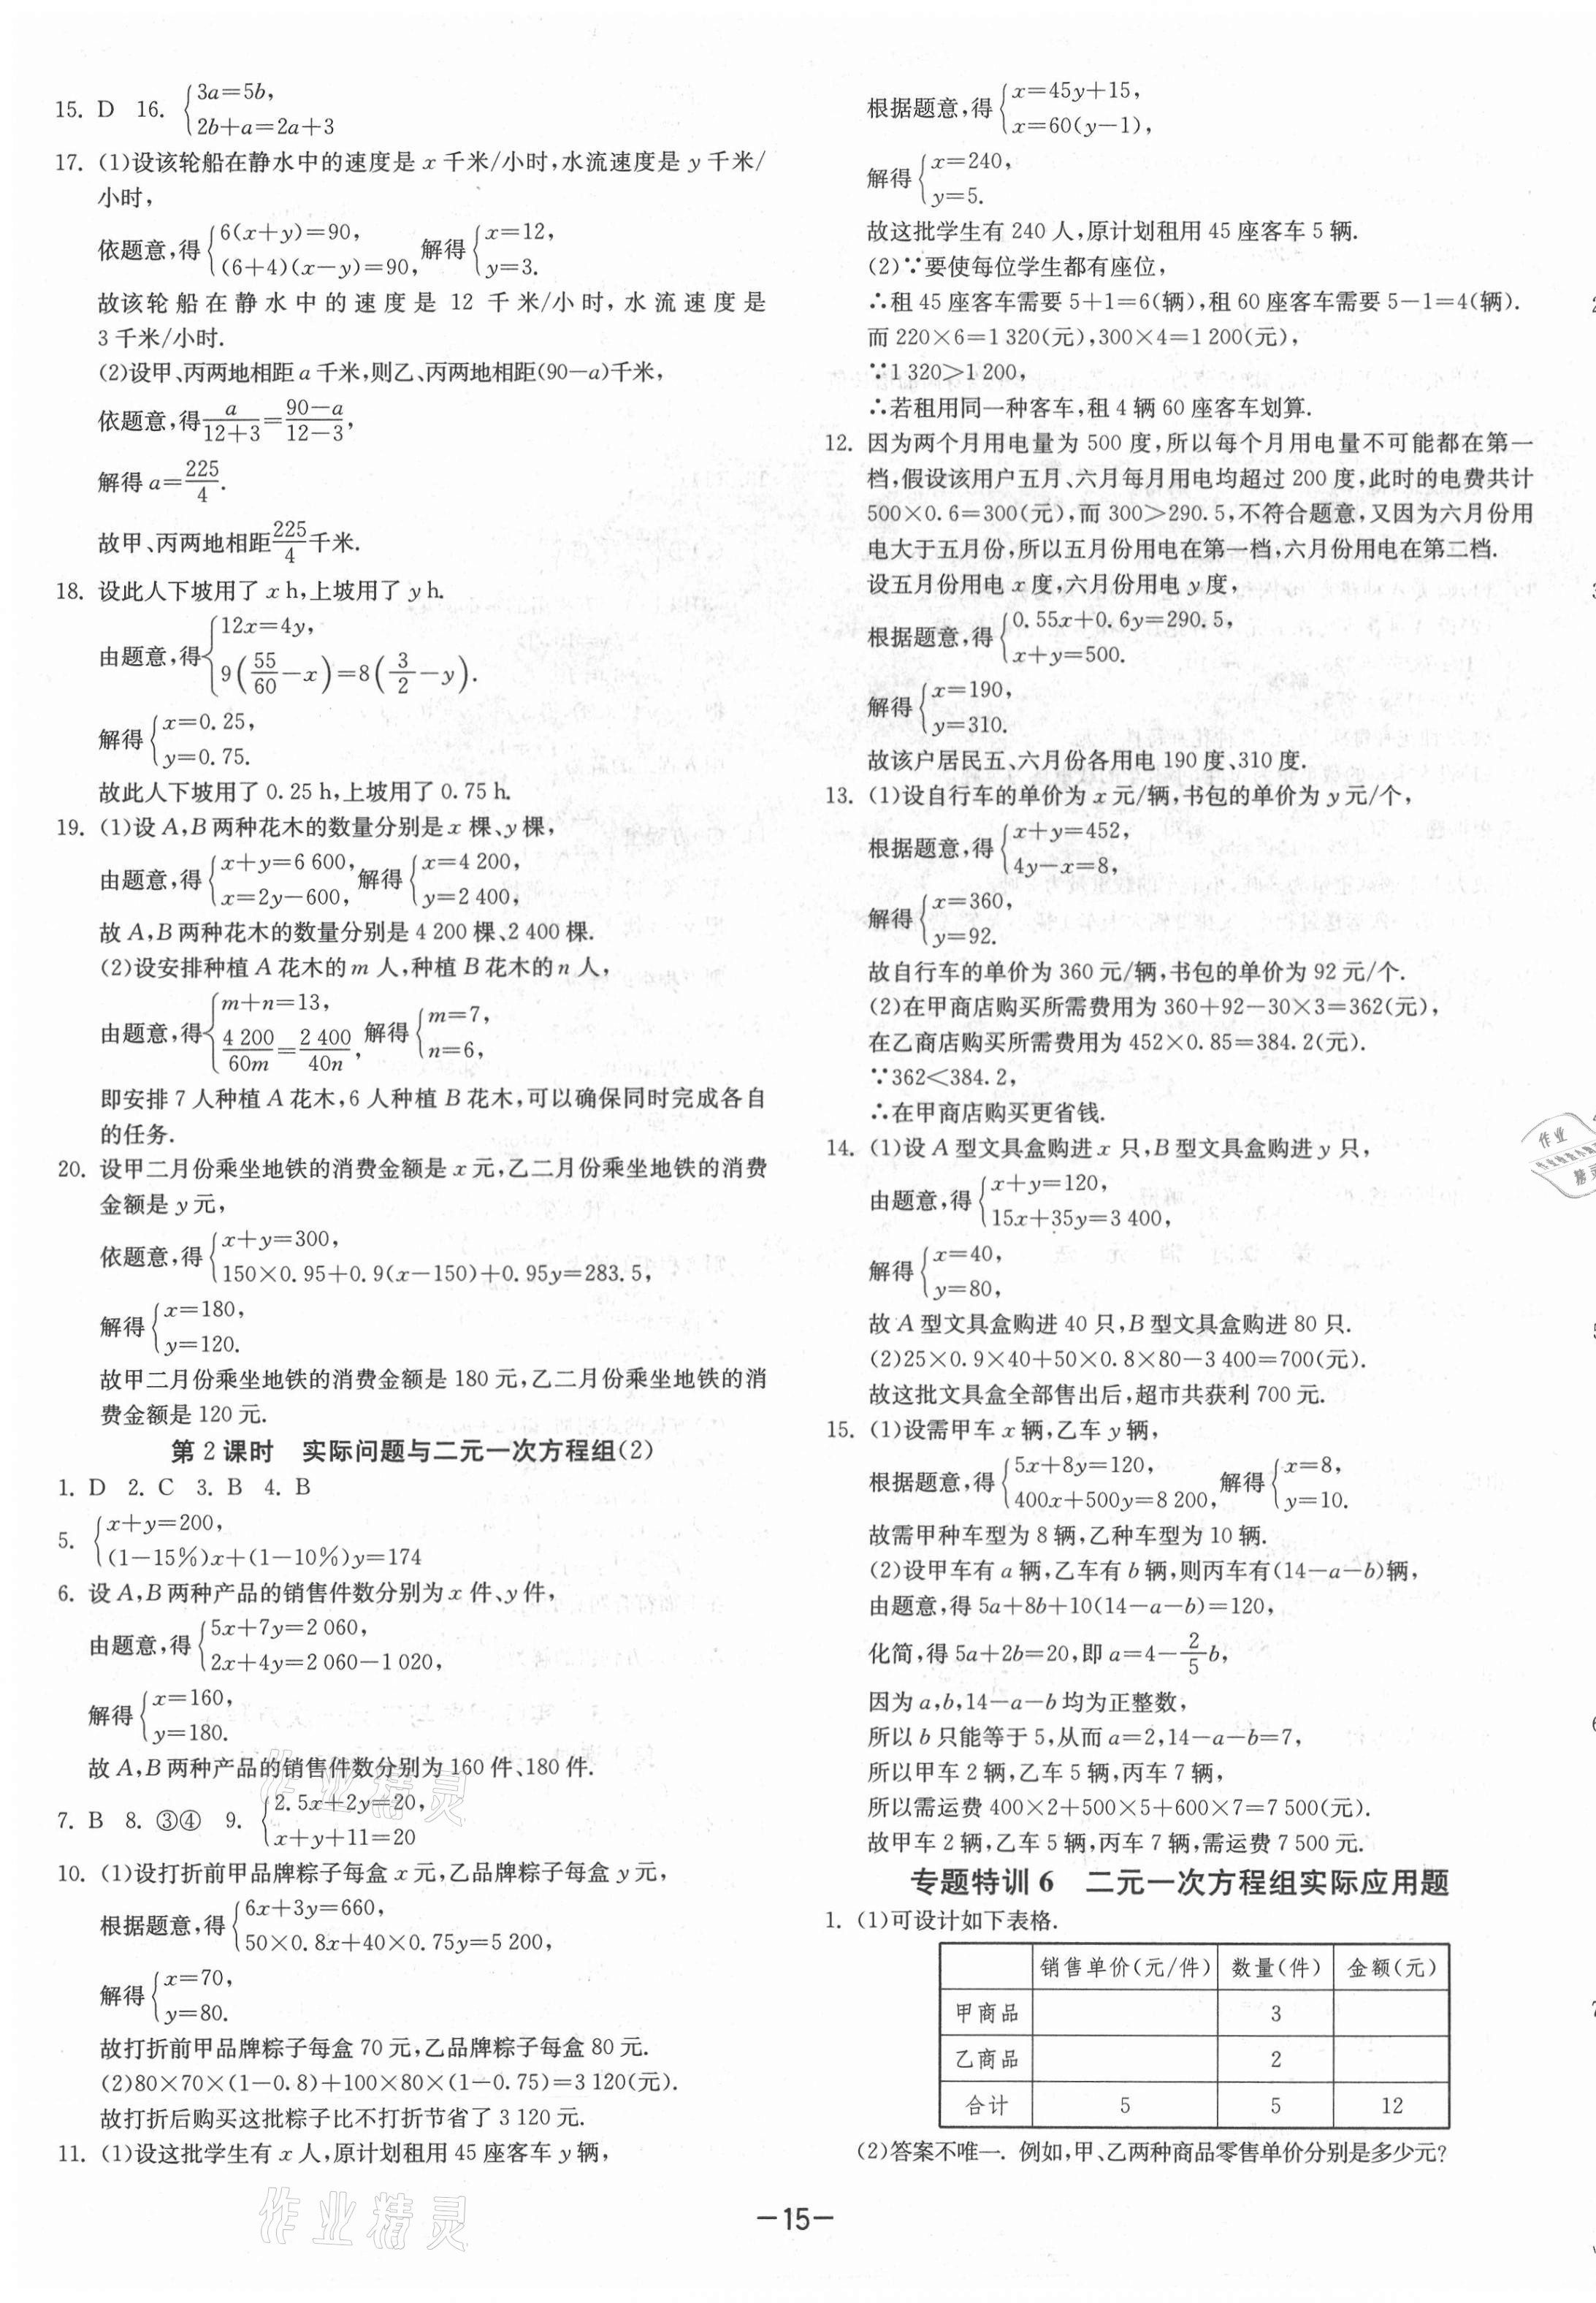 15. D 16. {3a=5b,
2b+a=2a+3
17. (1)设该轮船在静水中的速度是 x 千米/小时,水流速度是 y 千米/
小时,
依题意,得{6(x+y)=90,
(6+4)(x-y)=90, 解得{x=12,
y=3.
故该轮船在静水中的速度是 12 千米/小时,水流速度是
3 千米/小时.
(2)设甲、丙两地相距 a 千米,则乙、丙两地相距(90-a)千米,
依题意,得a/(12+3)=(90-a)/(12-3),
解得 a=225/4.
故甲、丙两地相距225/4千米.
18. 设此人下坡用了 x h,上坡用了 y h.
由题意,得{12x=4y,
9(55/60-x)=8(3/2-y).
解得{x=0.25,
y=0.75.
故此人下坡用了 0.25 h,上坡用了 0.75 h.
19. (1)设 A,B 两种花木的数量分别是 x 棵、y 棵,
由题意,得{x+y=6 600,
x=2y-600, 解得{x=4 200,
y=2 400,
故 A,B 两种花木的数量分别是 4 200 棵、2 400 棵.
(2)设安排种植 A 花木的 m 人,种植 B 花木的 n 人,
由题意,得{m+n=13,
4 200/60m=2 400/40n, 解得{m=7,
n=6,
即安排 7 人种植 A 花木,6 人种植 B 花木,可以确保同时完成各自
的任务.
20. 设甲二月份乘坐地铁的消费金额是 x 元,乙二月份乘坐地铁的消费
金额是 y 元,
依题意,得{x+y=300,
150×0.95+0.9(x-150)+0.95y=283.5,
解得{x=180,
y=120.
故甲二月份乘坐地铁的消费金额是 180 元,乙二月份乘坐地铁的消
费金额是 120 元.
第 2 课时 实际问题与二元一次方程组(2)
1. D 2. C 3. B 4. B
5. {x+y=200,
(1-15%)x+(1-10%)y=174
6. 设 A,B 两种产品的销售件数分别为 x 件、y 件,
由题意,得{5x+7y=2 060,
2x+4y=2 060-1 020,
解得{x=160,
y=180.
故 A,B 两种产品的销售件数分别为 160 件、180 件.
7. B 8. ③④ 9. {2.5x+2y=20,
x+y+11=20
10. (1)设打折前甲品牌粽子每盒 x 元,乙品牌粽子每盒 y 元,
根据题意,得{6x+3y=660,
50×0.8x+40×0.75y=5 200,
解得{x=70,
y=80.
故打折前甲品牌粽子每盒 70 元,乙品牌粽子每盒 80 元.
(2)80×70×(1-0.8)+100×80×(1-0.75)=3 120(元).
故打折后购买这批粽子比不打折节省了 3 120 元.
11. (1)设这批学生有 x 人,原计划租用 45 座客车 y 辆,
作业精灵
作业精灵
根据题意,得{x=45y+15,
x=60(y-1),
解得{x=240,
y=5.
故这批学生有 240 人,原计划租用 45 座客车 5 辆.
(2)∵要使每位学生都有座位,
∴租 45 座客车需要 5+1=6(辆),租 60 座客车需要 5-1=4(辆).
而 220×6=1 320(元),300×4=1 200(元),
∵1 320>1 200,
∴若租用同一种客车,租 4 辆 60 座客车划算.
12. 因为两个月用电量为 500 度,所以每个月用电量不可能都在第一
档,假设该用户五月、六月每月用电均超过 200 度,此时的电费共计
500×0.6=300(元),而 300>290.5,不符合题意,又因为六月份用
电大于五月份,所以五月份用电在第一档,六月份用电在第二档.
设五月份用电 x 度,六月份用电 y 度,
根据题意,得{0.55x+0.6y=290.5,
x+y=500.
解得{x=190,
y=310.
故该户居民五、六月份各用电 190 度、310 度.
13. (1)设自行车的单价为 x 元/辆,书包的单价为 y 元/个,
根据题意,得{x+y=452,
4y-x=8,
解得{x=360,
y=92.
故自行车的单价为 360 元/辆,书包的单价为 92 元/个.
(2)在甲商店购买所需费用为 360+92-30×3=362(元),
在乙商店购买所需费用为 452×0.85=384.2(元).
∵362<384.2,
∴在甲商店购买更省钱.
14. (1)设 A 型文具盒购进 x 只,B 型文具盒购进 y 只,
由题意,得{x+y=120,
15x+35y=3 400,
解得{x=40,
y=80,
故 A 型文具盒购进 40 只,B 型文具盒购进 80 只.
(2)25×0.9×40+50×0.8×80-3 400=700(元).
故这批文具盒全部售出后,超市共获利 700 元.
15. (1)设需甲车 x 辆,乙车 y 辆,
根据题意,得{5x+8y=120,
400x+500y=8 200, 解得{x=8,
y=10.
故需甲种车型为 8 辆,乙种车型为 10 辆.
(2)设甲车有 a 辆,乙车有 b 辆,则丙车有(14-a-b)辆,
由题意,得 5a+8b+10(14-a-b)=120,
化简,得 5a+2b=20,即 a=4-2/5b,
因为 a,b,14-a-b 均为正整数,
所以 b 只能等于 5,从而 a=2,14-a-b=7,
所以甲车 2 辆,乙车 5 辆,丙车 7 辆,
所以需运费 400×2+500×5+600×7=7 500(元).
故甲车 2 辆,乙车 5 辆,丙车 7 辆,需运费 7 500 元.
专题特训 6 二元一次方程组实际应用题
1. (1)可设计如下表格.
销售单价(元/件) 数量(件) 金额(元)
甲商品 3
乙商品 2
合计 5 5 12
(2)答案不唯一. 例如,甲、乙两种商品零售单价分别是多少元?
作业
-15-